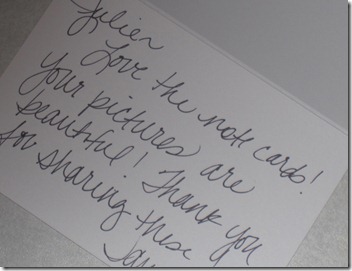 Julien
Love the note cards!
Your pictures are
beautiful! Thank you
for sharing these